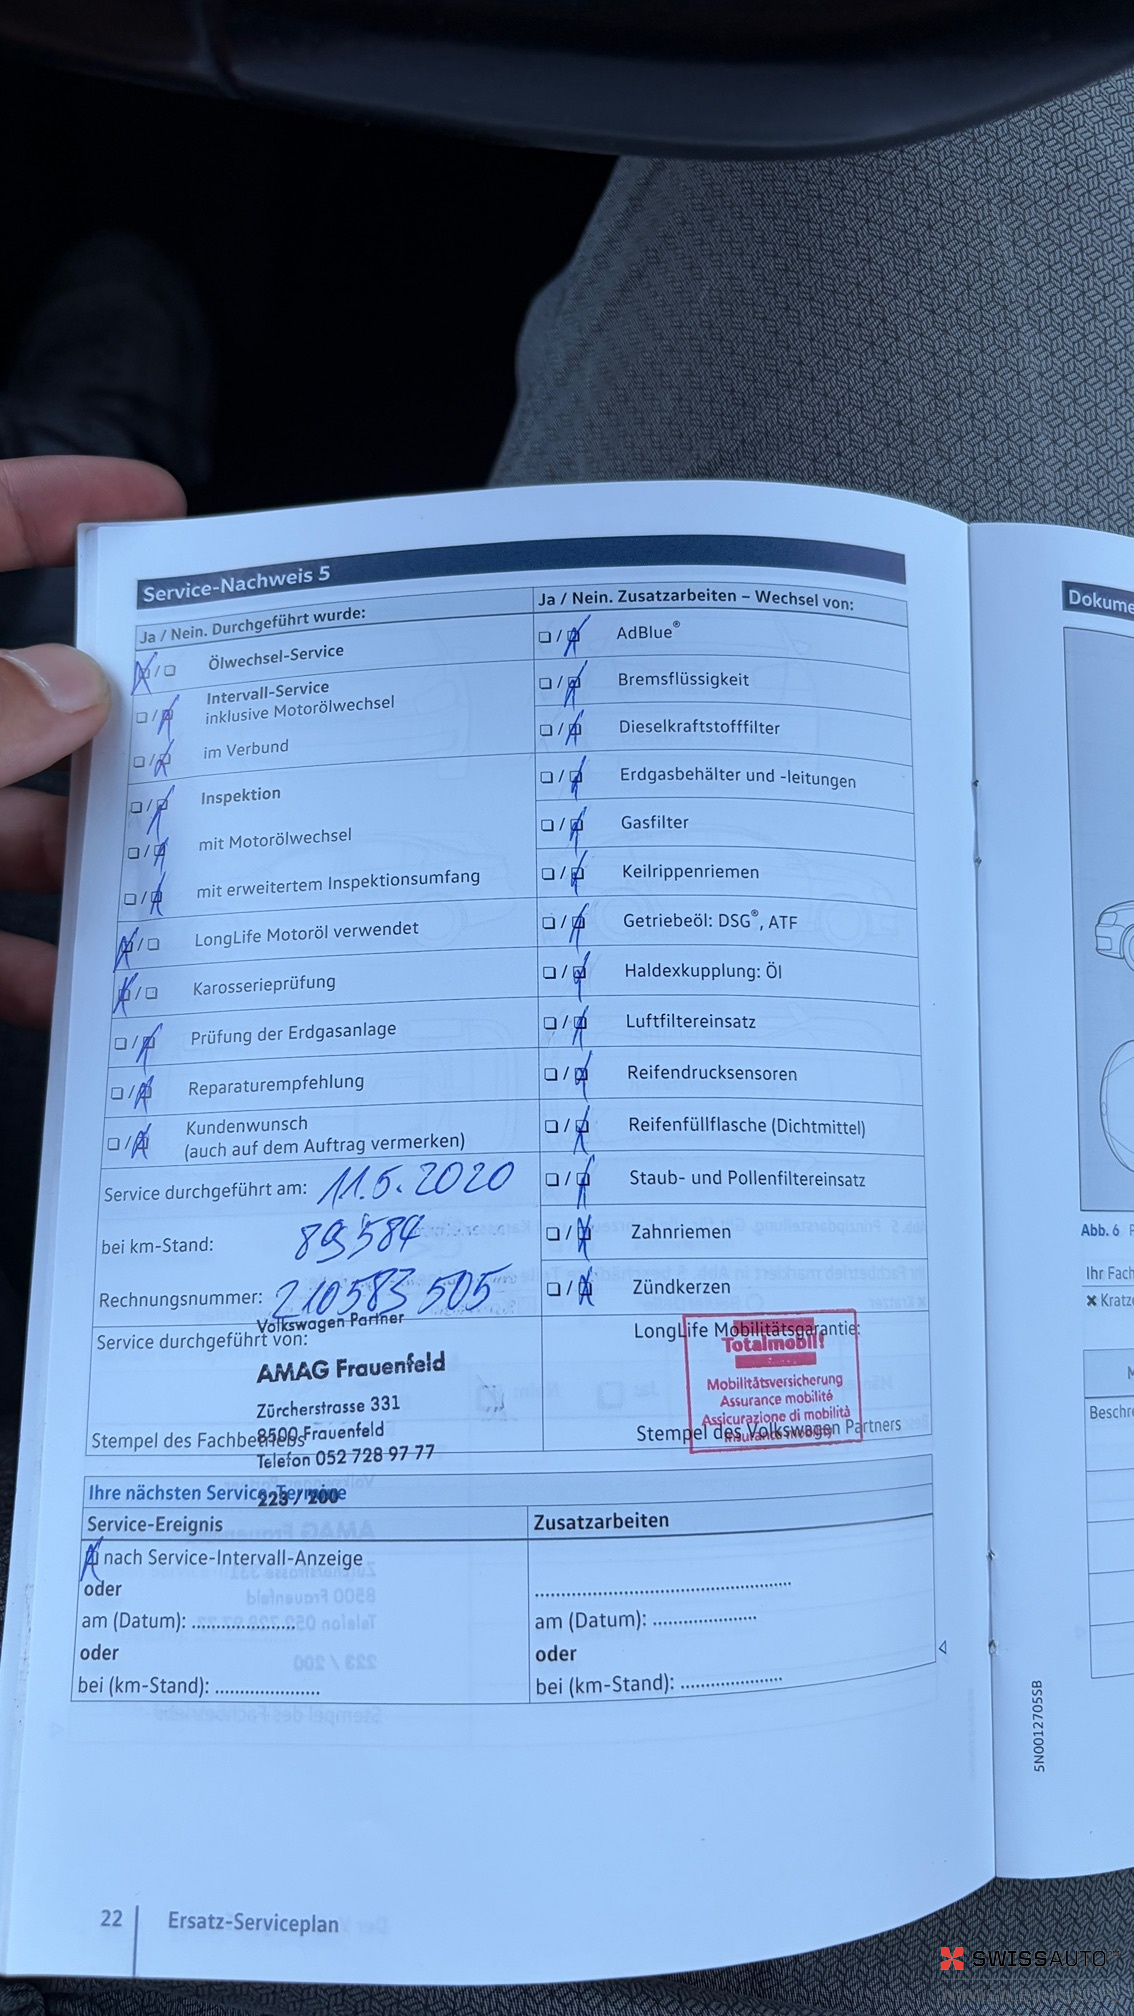 Service-Nachweis 5
Ja / Nein. Durchgeführt wurde:
Ölwechsel-Service
Intervall-Service
inklusive Motorölwechsel
im Verbund
Inspektion
mit Motorölwechsel
mit erweitertem Inspektionsumfang
LongLife Motoröl verwendet
Karosserieprüfung
Prüfung der Erdgasanlage
Reparaturempfehlung
Kundenwunsch
(auch auf dem Auftrag vermerken)
Service durchgeführt am: 11.5.2020
bei km-Stand: 89584
Rechnungsnummer: 210583505
Volkswagen Partner
Service durchgeführt von:
AMAG Frauenfeld
Zürcherstrasse 331
8500 Frauenfeld
Stempel des Fachbetriebs
Telefon 052 728 97 77
223 / 200
Ja / Nein. Zusatzarbeiten – Wechsel von:
AdBlue®
Bremsflüssigkeit
Dieselkraftstofffilter
Erdgasbehälter und -leitungen
Gasfilter
Keilrippenriemen
Getriebeöl: DSG®, ATF
Haldexkupplung: Öl
Luftfiltereinsatz
Reifendrucksensoren
Reifenfüllflasche (Dichtmittel)
Staub- und Pollenfiltereinsatz
Zahnriemen
Zündkerzen
LongLife Mobilitätsgarantie:
Totalmobil!
Mobilitätsversicherung
Assurance mobilité
Assicurazione di mobilità
Insurance mobility
Stempel des Volkswagen Partners
Ihre nächsten Service-Termine
Service-Ereignis
nach Service-Intervall-Anzeige
oder
am (Datum): .....................
oder
bei (km-Stand): .....................
Zusatzarbeiten
..................................................
am (Datum): .....................
oder
bei (km-Stand): .....................
22 Ersatz-Serviceplan
5N0012705SB
Dokume
Abb. 6
Ihr Fach
Kratze
Beschre
SWISSAUTO